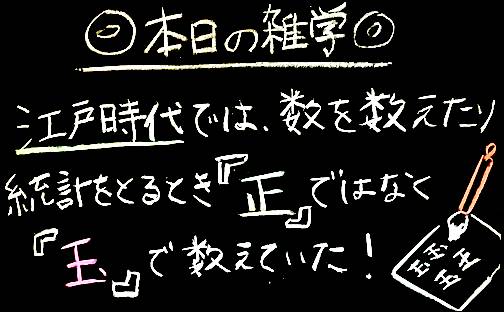 ◎本日の雑学◎
江戸時代では、数を数えたり
統計をとるとき『正』ではなく
『玉』で数えていた！
玉玉
玉玉